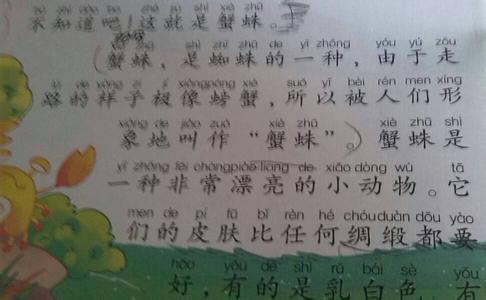 不知道吧！这就是蟹蛛。
shì zhī zhū de yì zhǒng yóu yú zǒu
（蟹蛛，是蜘蛛的一种，由于走
lù de yàng zi jí xiàng páng xiè suǒ yǐ bèi rén men xíng
路的样子极像螃蟹，所以被人们形
xiàng de jiào zuò xiè zhū xiè zhū shì
象地叫作“蟹蛛”。）蟹蛛是
yì zhǒng fēi cháng piào liang de xiǎo dòng wù tā
一种非常漂亮的小动物。它
men de pí fū bǐ rèn hé chóu duàn dōu yào
们的皮肤比任何绸缎都要
hǎo yǒu de shì rǔ bái sè yǒu
好，有的是乳白色，有